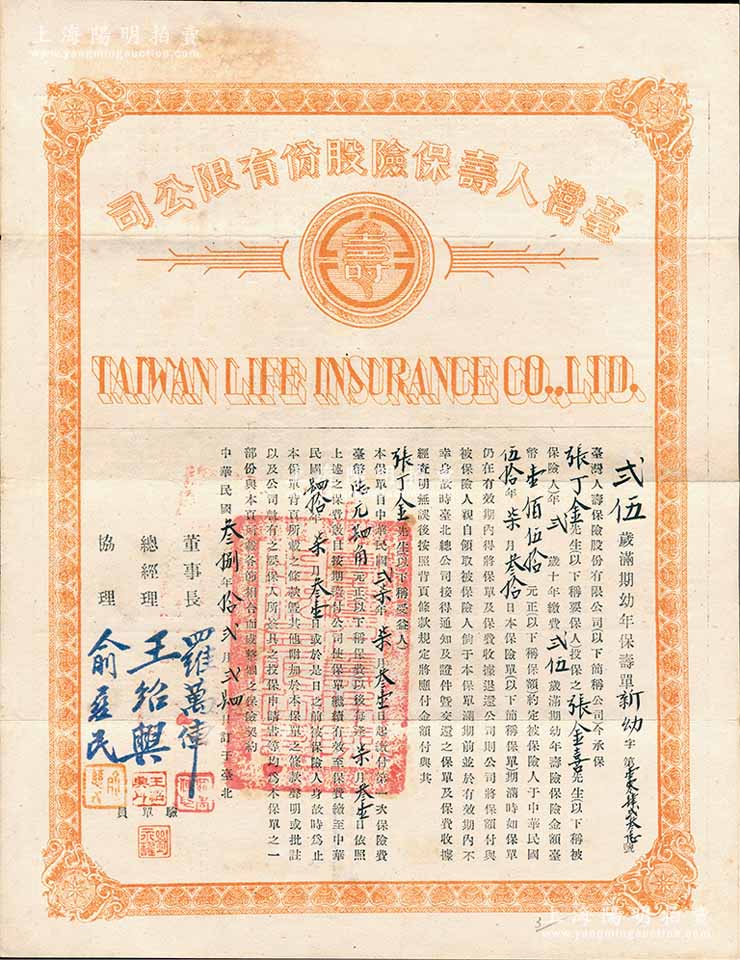 上海陽明拍賣
www.yangmingauction.com
臺灣人壽保險股份有限公司
壽
TAIWAN LIFE INSURANCE CO., LTD.
弍伍歲滿期幼年保壽單新幼字第號
臺灣人壽保險股份有限公司以下簡稱公司今承保
張丁金先生以下稱要保人投保之張金喜先生以下稱被
保險人年弍歲十年繳費弍伍歲滿期幼年壽險保險金額臺
幣壹佰伍拾元正以下稱保額約定被保險人于中華民國
伍拾年柒月叁拾日本保險單(以下簡稱保單期滿時如保單
仍在有效期內得將保單及保費收據退還公司則公司將保額付與
被保險人親自領取被保險人倘于本保單滿期前並於有效期內不
幸身故時臺北總公司接得通知及證件曁交還之保單及保費收據
經查明無誤後按照背頁條款規定將應付金額付與其
張丁金先生以下稱受益人
本保單自中華民國弍柒年柒月叁壹日起繳付第一次保險費
臺幣陸元肆角元正以下稱保費以後每逢柒月叁壹日依照
上述之保費數目按期繳付公司使保單繼續有效至保費繳至中華
民國肆拾年柒月叁壹日或於是日之前被保險人身故時爲止
本保單背頁所載之條款曁其他附加於本保單之條款聲明或批註
以及公司執有之要保人所簽具之投保申請書等均爲本保單之一
部份與本頁所載各節相合而成整個之保險契約
中華民國叁捌年拾弍月弍肆日訂于臺北
董事長 羅萬俥
總經理 王紹興
協理 俞慈民
驗單員
上海陽明拍賣
www.yangmingauction.com